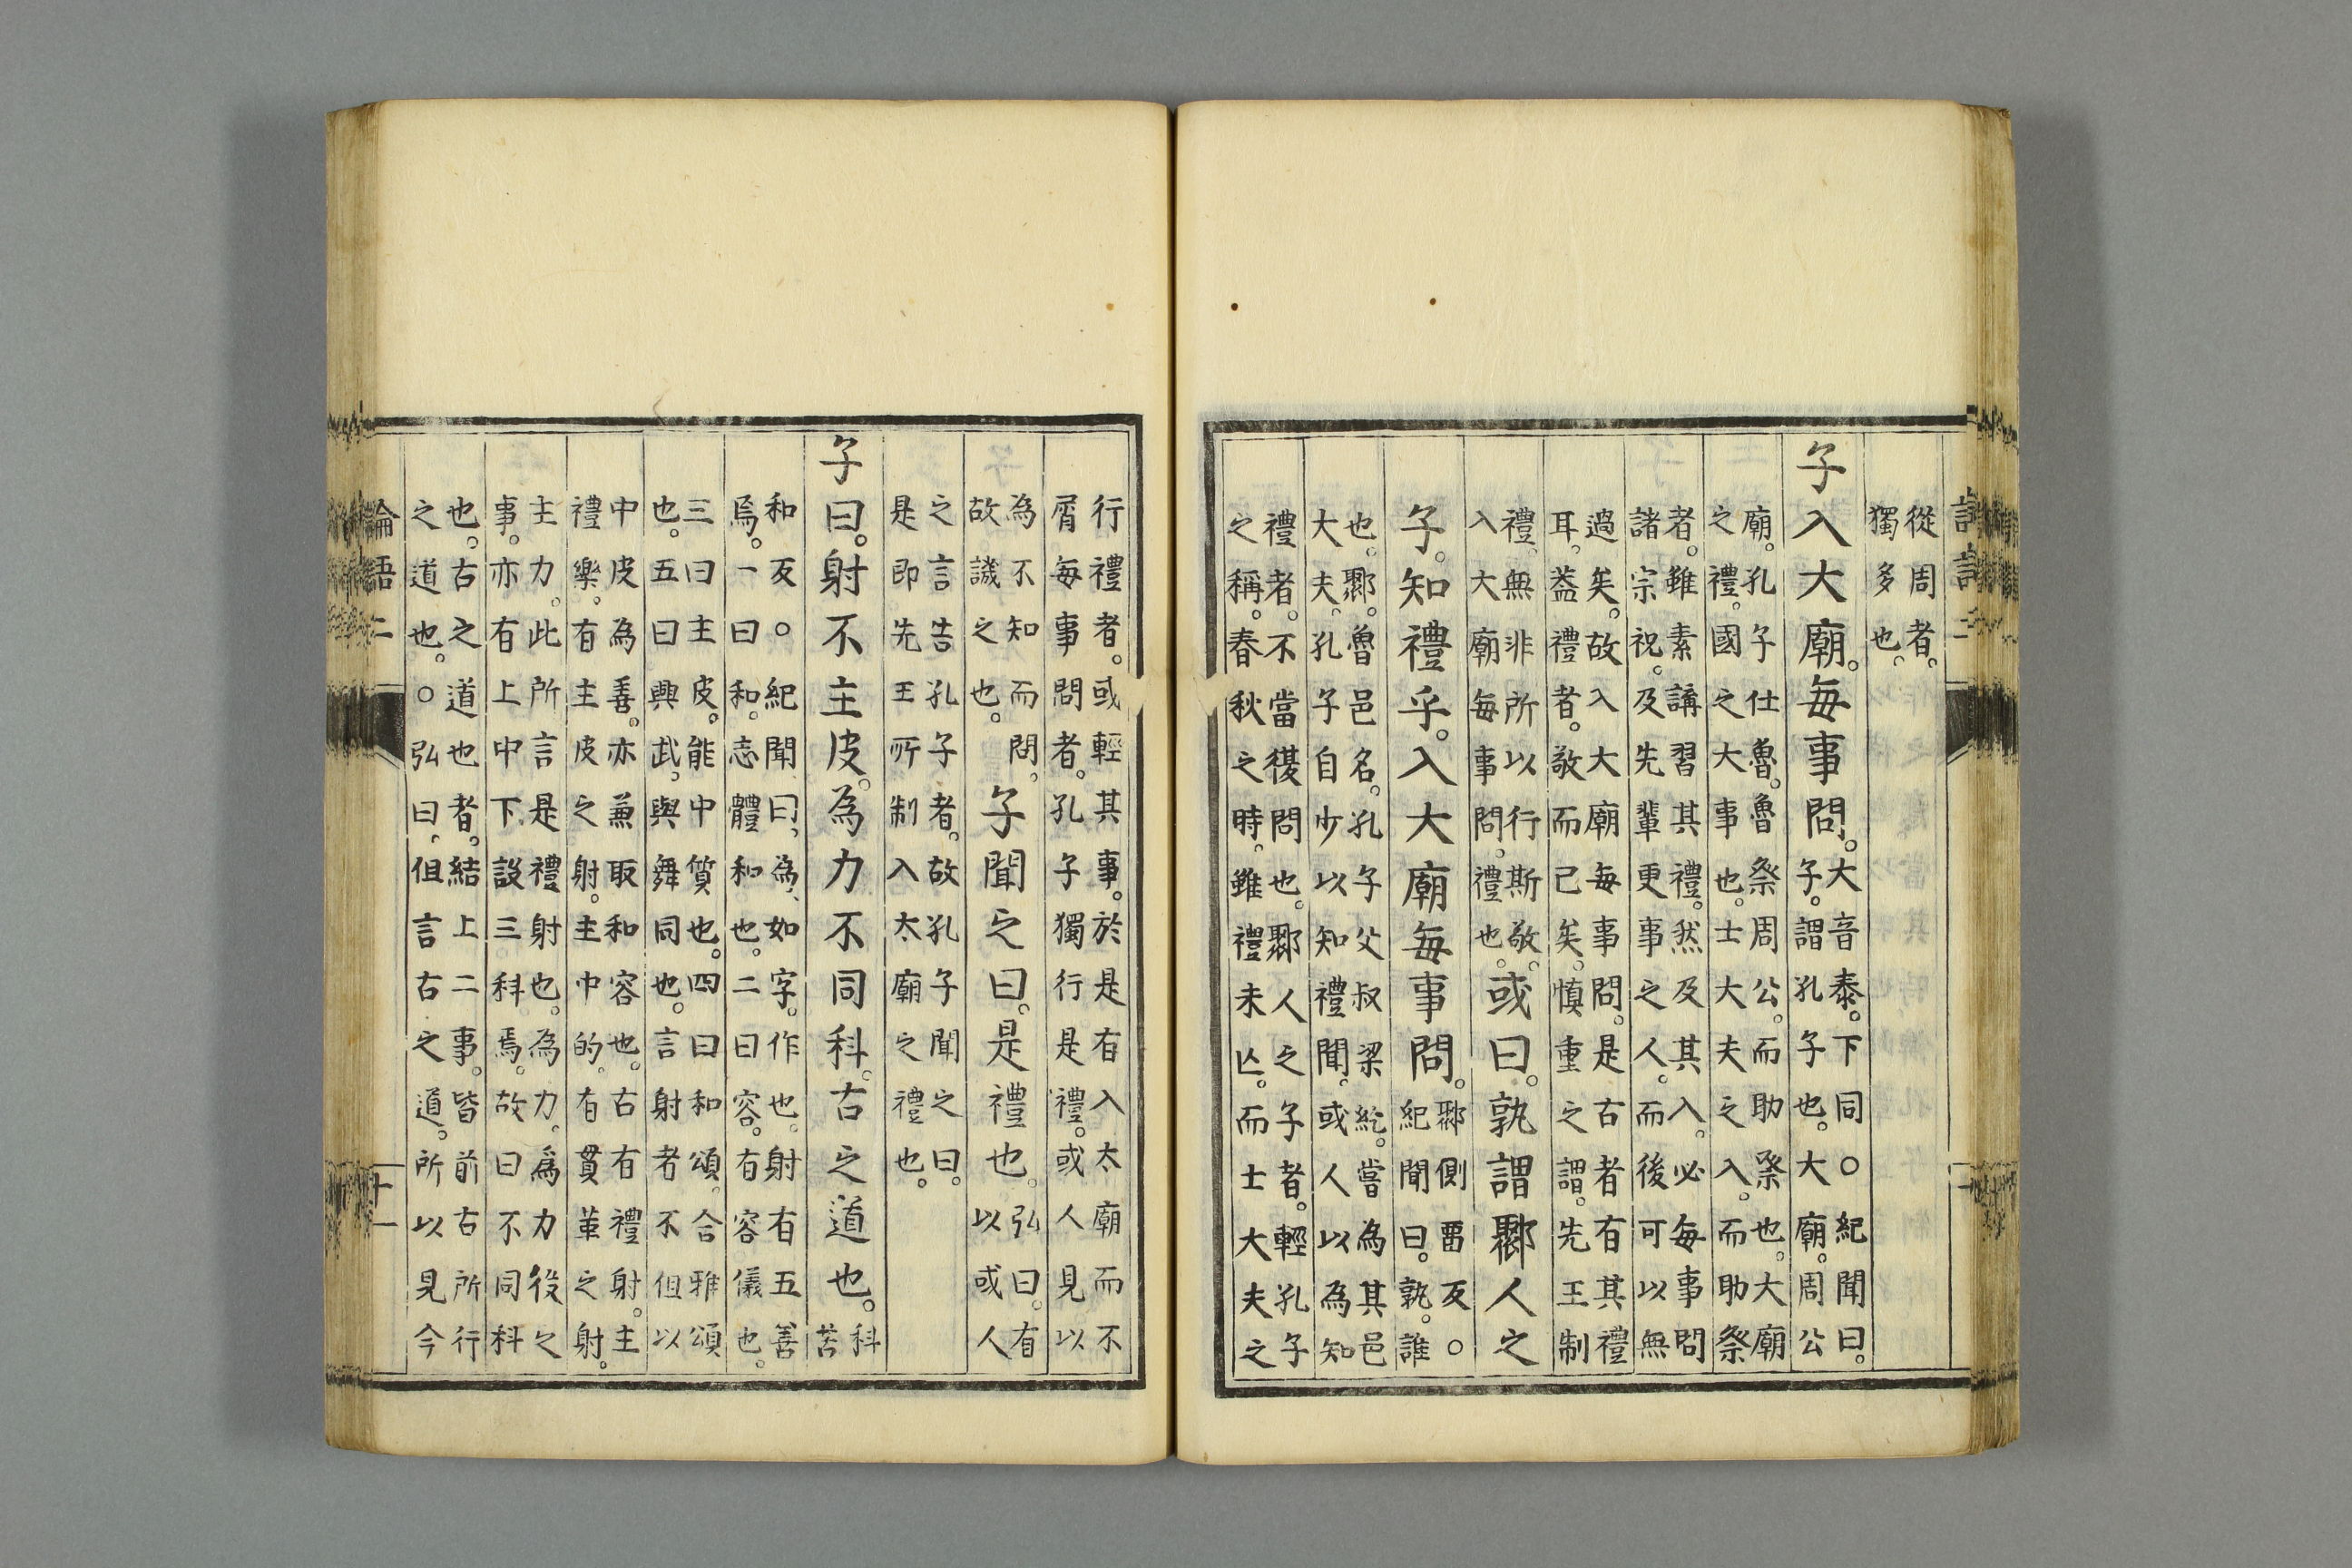 從周者。
獨多也。
子入大廟。每事問。大音泰。下同○紀聞曰。
子。謂孔子也。大廟。周公
廟。孔子仕魯。魯祭周公。而助祭也。大廟
之禮。國之大事也。士大夫之入。而助祭
者。雖素講習其禮。然及其入。必每事問
諸宗祝。及先輩更事之人。而後可以無
過矣。故入大廟每事問。是古者有其禮
耳。蓋禮者。敬而已矣。慎重之謂。先王制
禮。無非所以行斯敬。
入大廟每事問。禮也。或曰。孰謂鄹人之
子。知禮乎。入大廟每事問。鄹側畱反○
紀聞曰。孰。誰
也。鄹。魯邑名。孔子父叔梁紇。嘗為其邑
大夫。孔子自少以知禮聞。或人以為知
禮者。不當復問也。鄹人之子者。輕孔子
之稱。春秋之時。雖禮未亾。而士大夫之
行禮者。或輕其事。於是有入太廟而不
屑每事問者。孔子獨行是禮。或人見以
為不知而問。
故譏之也。子聞之曰。是禮也。弘曰。有
以或人
之言告孔子者。故孔子聞之曰。
是即先王所制入太廟之禮也。
子曰。射不主皮。為力不同科。古之道也。科
苦
和反○紀聞曰、為、如字。作也。射有五善
焉。一曰和。志體和也。二曰容。有容儀也。
三曰主皮。能中質也。四曰和頌。合雅頌
也。五曰興武。與舞同也。言射者不但以
中皮為善。亦兼取和容也。古有禮射。主
禮樂。有主皮之射。主中的。有貫革之射。
主力。此所言是禮射也。為力。爲力役之
事。亦有上中下。設三科焉。故曰不同科
也。古之道也者。結上二事。皆前古所行
之道也。○弘曰、但言古之道。所以見今
論語二
十一